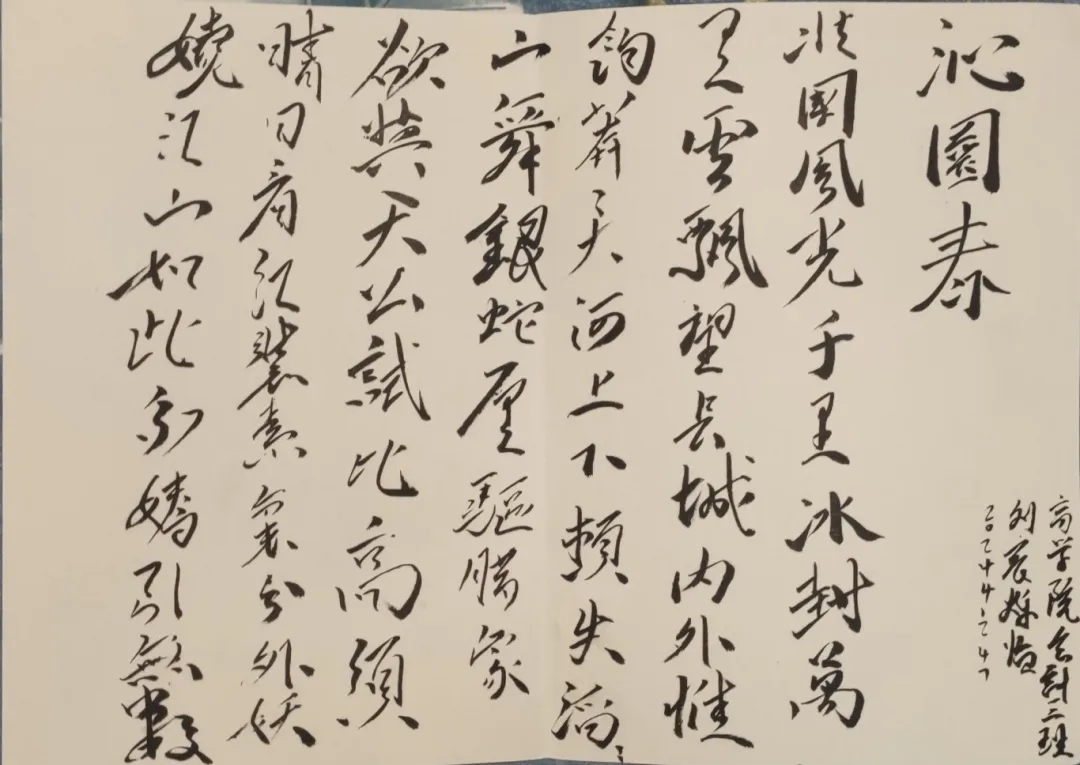 沁園春
北國風光千里冰封萬
里雪飄望長城内外惟
餘莽々大河上下頓失滔々
山舞銀蛇原驅腊象
欲與天公試比高須
晴日看紅裝素裹分外妖
嬈江山如此多嬌引無數
商学院会計二班
刘辰